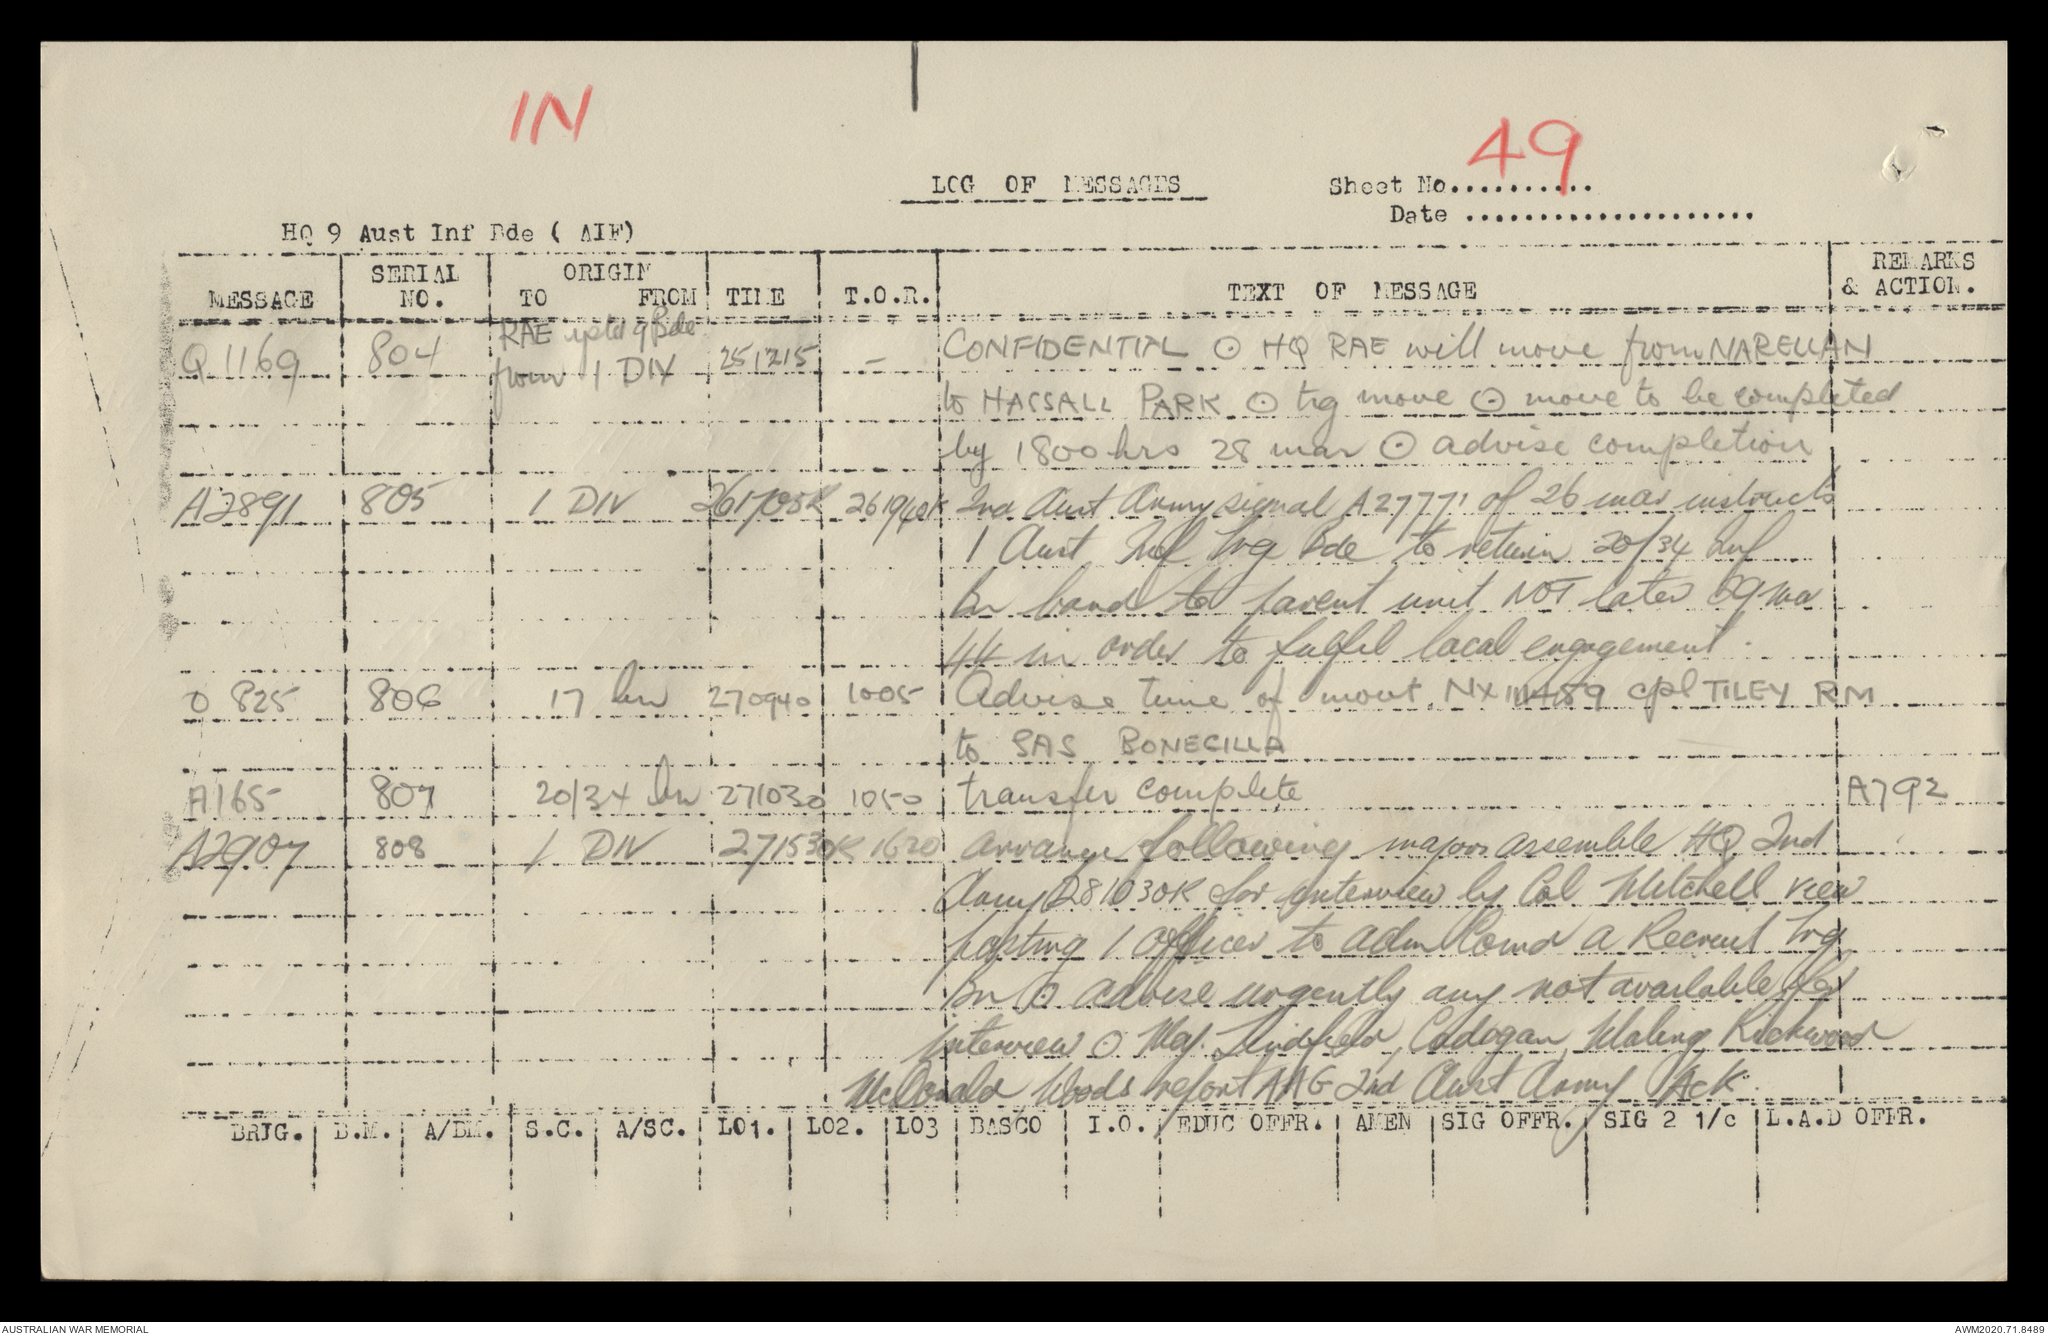 IN
49
LOG OF MESSAGES
Sheet No..........
Date ....................
HQ 9 Aust Inf Bde ( AIF)
MESSAGE SERIAL NO. ORIGIN TO FROM TIME T.O.R. TEXT OF MESSAGE REMARKS & ACTION.
Q 1169 804 RAE 9 Bde from 1 DIV 251215 — CONFIDENTIAL ⊙ HQ RAE will move from NARELLAN
to HASSALL PARK ⊙ trg move ⊙ move to be completed
by 1800 hrs 28 mar ⊙ advise completion
A2891 805 1 DIV 261705K 261940K 2nd Aust Army signal A27771 of 26 mar instructs
1 Aust Inf Trg Bde to return 20/34 Inf
Bn band to parent unit NOT later 29 mar
44 in order to fulfil local engagement.
O 825 806 17 bn 270940 1005 Advise time of movt. cpl TILEY RM
to SAS BONEGILLA
A165 807 20/34 bn 271030 1050 transfer complete A792
A2907 808 1 DIV 271530K 1620 arrange following majors assemble HQ 2nd
Army 281030K for interview by Col Mitchell view
posting 1 officer to adm Comd a Recruit Trg
Bn ⊙ advise urgently any not available for
interview ⊙ Maj. Lindfield, Cadogan, Maling, Rickwood
McDonald Woods report AAG 2nd Aust Army Ack.
BRIG. B.M. A/BM. S.C. A/SC. LO1. LO2. LO3 BASCO I.O. EDUC OFFR. AMEN SIG OFFR. SIG 2 1/c L.A.D OFFR.
AUSTRALIAN WAR MEMORIAL
AWM2020.71.8489